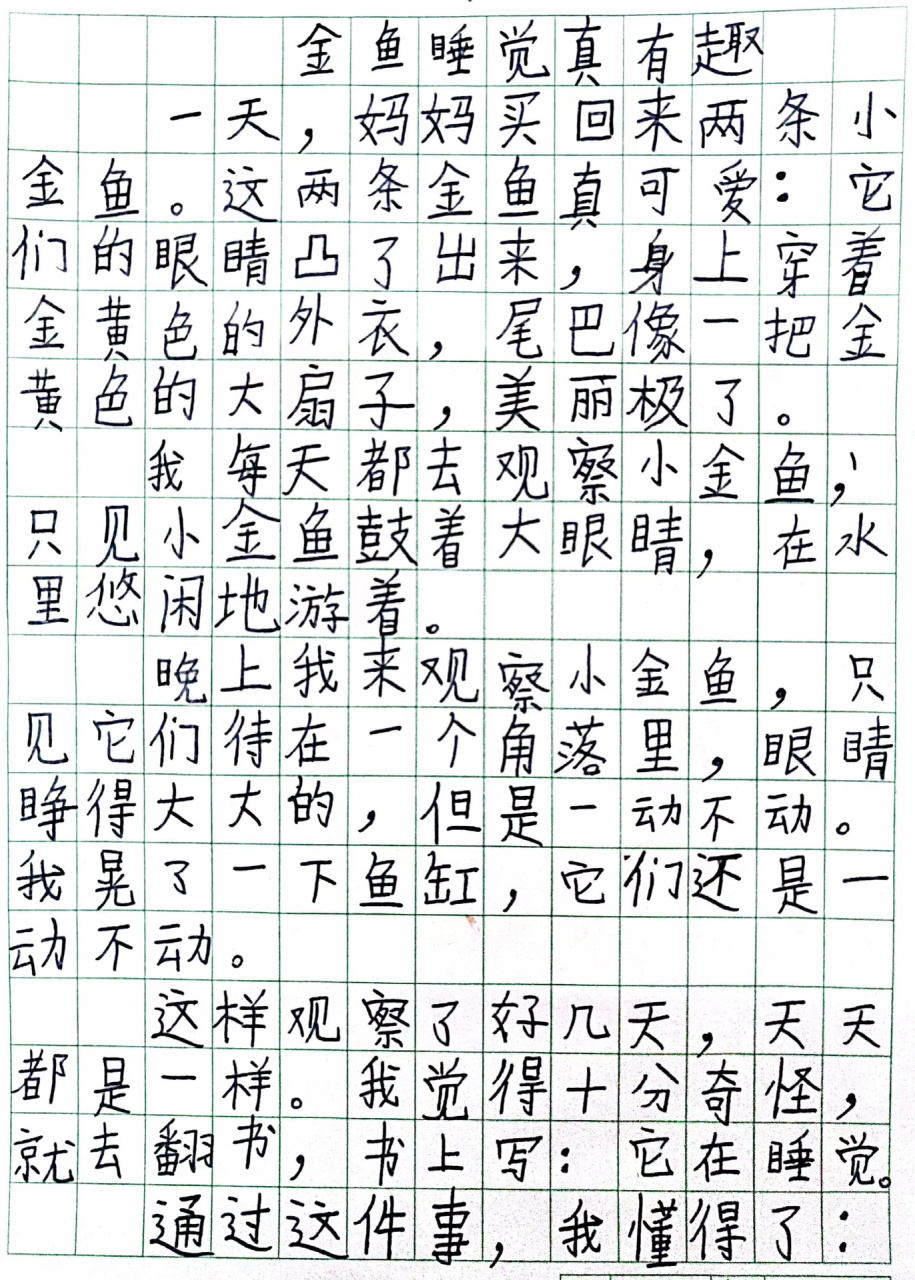 金鱼睡觉真有趣
一天，妈妈买回来两条小
金鱼。这两条金鱼真可爱：它
们的眼睛凸了出来，身上穿着
金黄色的外衣，尾巴像一把金
黄色的大扇子，美丽极了。
我每天都去观察小金鱼，
只见小金鱼鼓着大眼睛，在水
里悠闲地游着。
晚上我来观察小金鱼，只
见它们待在一个角落里，眼睛
睁得大大的，但是一动不动。
我晃了一下鱼缸，它们还是一
动不动。
这样观察了好几天，天天
都是一样。我觉得十分奇怪，
就去翻书，书上写：它在睡觉。
通过这件事，我懂得了：